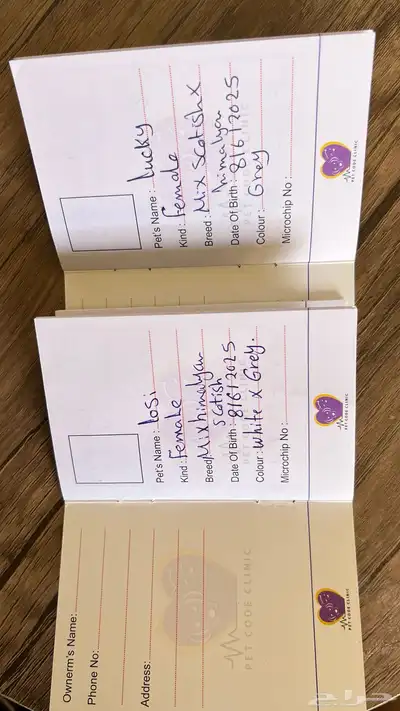 Pet's Name : Lucky
Kind : Female
Breed : Mix Scotish x
himalyan
Date Of Birth : 8/6/2025
Colour : Grey
Microchip No :
PET CODE CLINIC
Pet's Name : losi
Kind : Female
Breed Mix himalyan
Scotish
Date Of Birth : 8/6/2025
Colour : White x Grey.
Microchip No :
PET CODE CLINIC
Ownerm's Name:
Phone No:
Address:
PET CODE CLINIC
PET CODE CLINIC
حراج